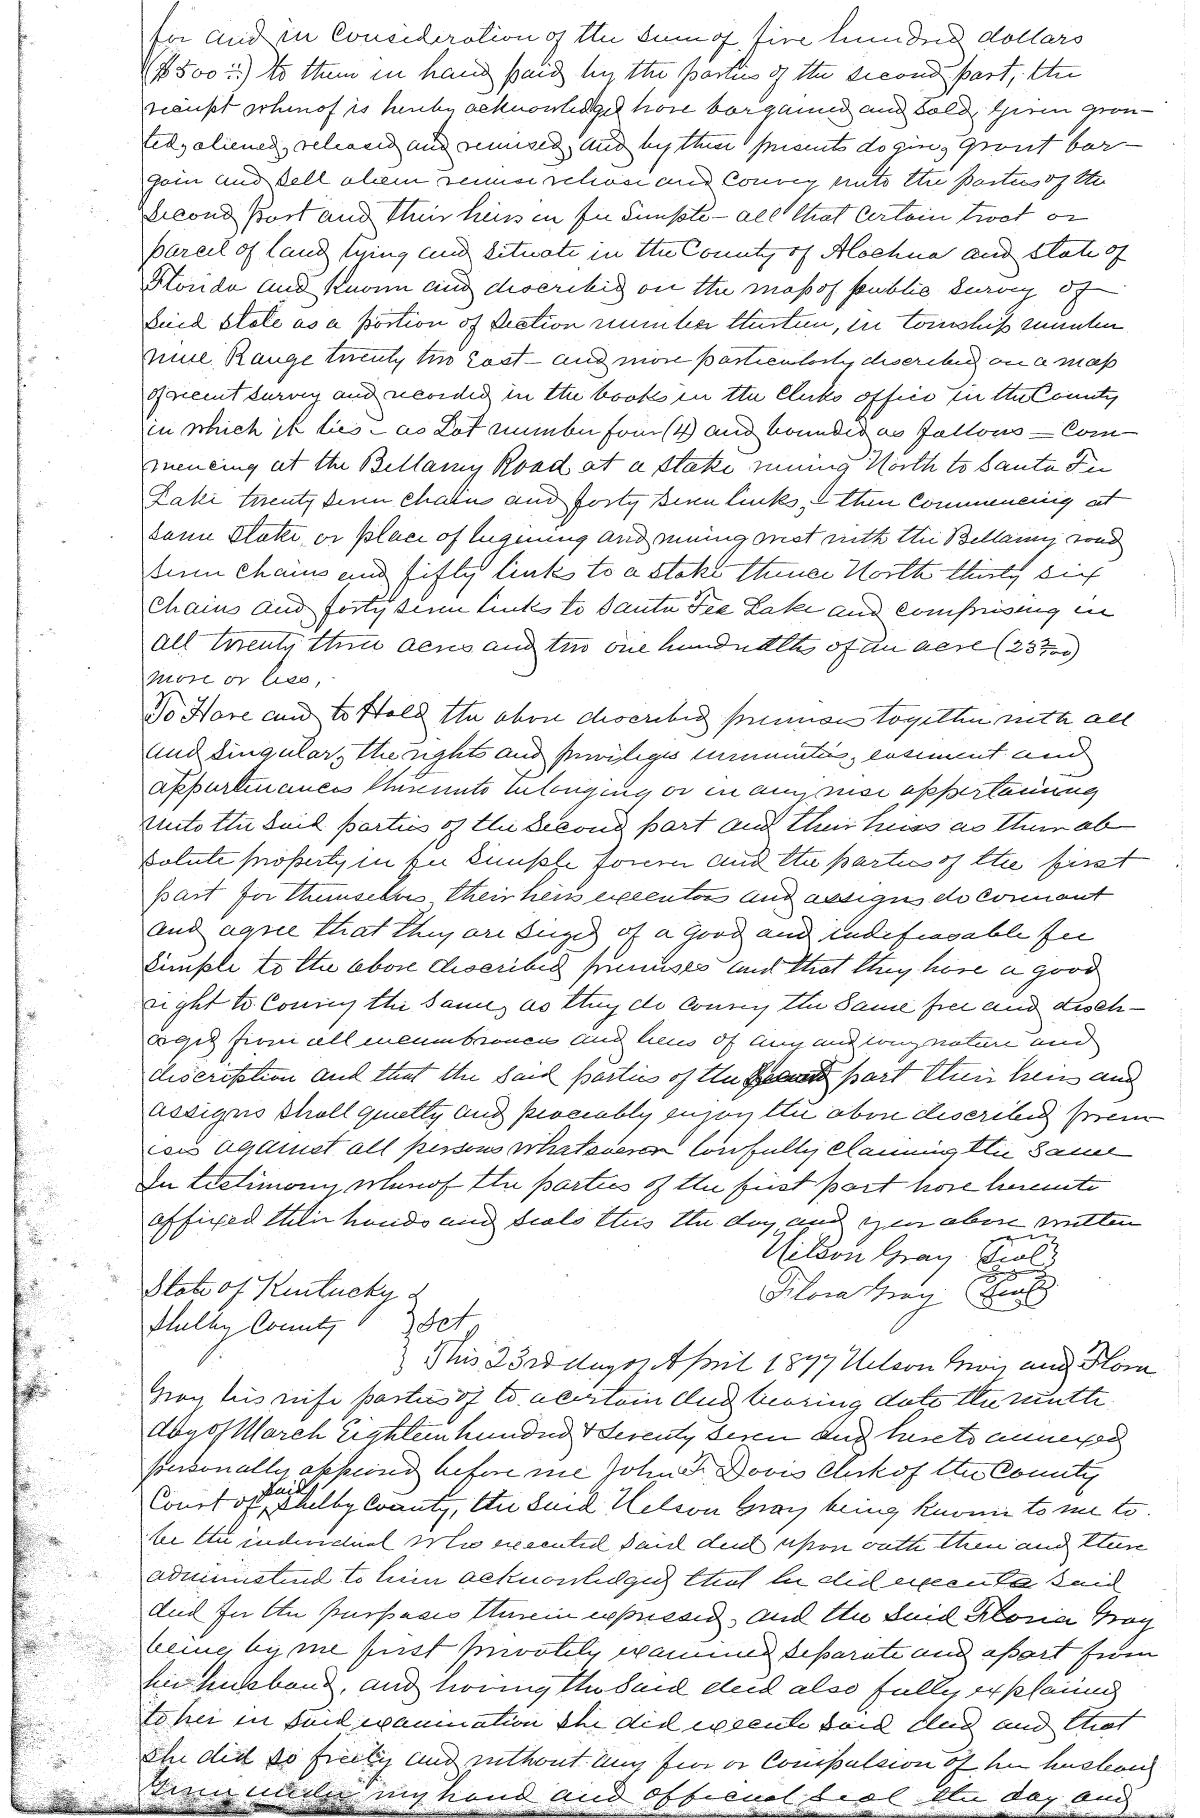 for and in consideration of the sum of five hundred dollars
($500 00) to them in hand paid by the parties of the second part, the
receipt whereof is hereby acknowledged have bargained and sold, given gran-
ted, aliened, released and remised, and by these presents do give, grant bar-
gain and sell alien remise release and convey unto the parties of the
second part and their heirs in fee simple - all that certain tract or
parcel of land lying and situate in the County of Alachua and state of
Florida and known and discribed on the map of public survey of
said state as a portion of section number thirteen, in township number
nine Range twenty two East - and more particularly discribed on a map
of recent survey and recorded in the books in the Clerks office in the County
in which it lies - as Lot number four (4) and bounded as follows - Com-
mencing at the Bellamy Road at a stake running North to Santa Fee
Lake twenty seven chains and forty seven links, then commencing at
same stake or place of begining and running west with the Bellamy road
seven chains and fifty links to a stake thence North thirty six
chains and forty seven links to Santa Fee Lake and comprising in
all twenty three acres and two one hundredths of an acre (23 2/100)
more or less,
To Have and to Hold the above discribed premises together with all
and singular, the rights and privileges immunities, easement and
appurtenances thereunto belonging or in any wise appertaining
unto the said parties of the second part and their heirs as their ab
solute property in fee simple forever and the parties of the first
part for themselves, their heirs executors and assigns do covenant
and agree that they are siezed of a good and indefeasable fee
simple to the above discribed premises and that they have a good
right to convey the same, as they do convey the same free and disch-
arged from all incumbrances and liens of any and every nature and
discription and that the said parties of the second part their heirs and
assigns shall quietly and peaceably enjoy the above described prem-
ises against all persons whatsoever lawfully claiming the same
In testimony whereof the parties of the first part have hereunto
affixed their hands and seals this the day and year above written
Nelson Gray Seal
Flora Gray Seal
State of Kentucky
Shelby County } Sct.
This 23rd day of April 1877 Nelson Gray and Flora
Gray his wife parties of to a certain deed bearing date the ninth
day of March Eighteen hundred & seventy seven and hereto annexed
personally appeared before me John F. Davis Clerk of the County
Court of said Shelby County, the said Nelson Gray being known to me to
be the individual who executed said deed upon oath then and there
administered to him acknowledged that he did execute said
deed for the purposes therein expressed, and the said Floria Gray
being by me first privately examined separate and apart from
her husband, and having the said deed also fully explained
to her in said examination she did execute said deed and that
she did so freely and without any fear or compulsion of her husband
Given under my hand and official seal the day and